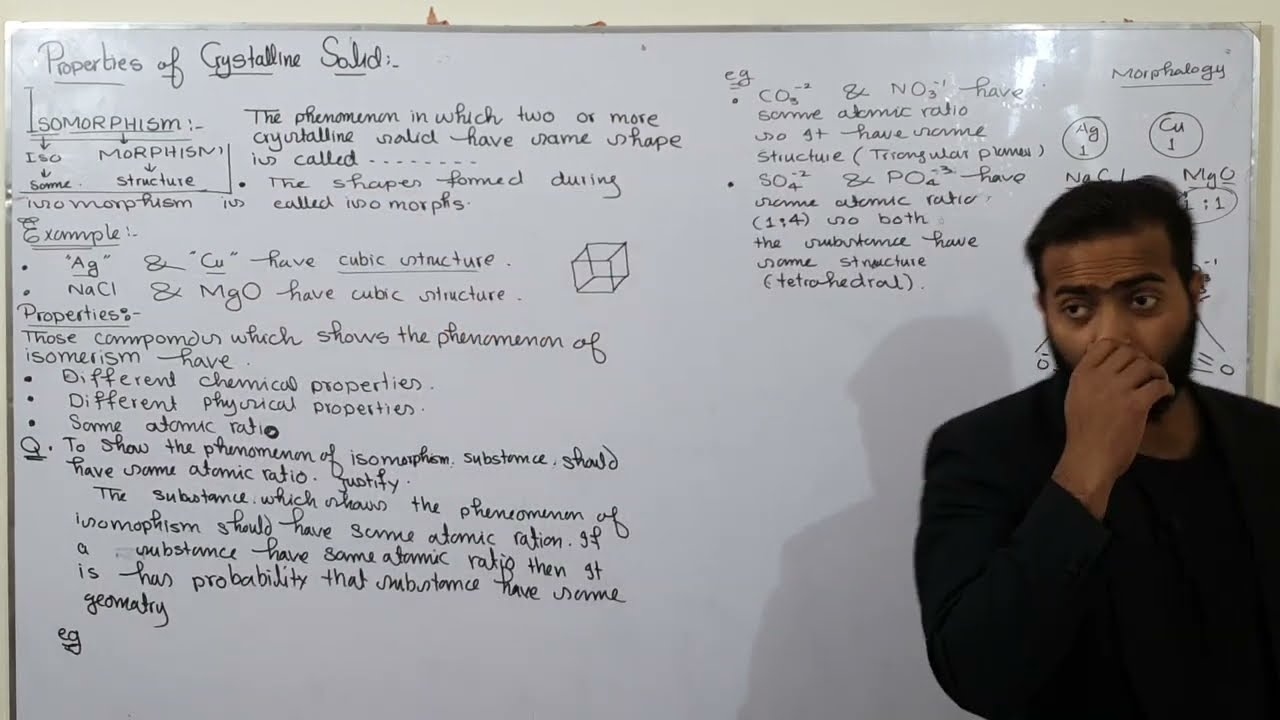 Properties of Crystalline Solid:-
ISOMORPHISM:-
Iso MORPHISM,
Same structure
The phenomenon in which two or more
crystalline solid have same shape
is called --------
• The shapes formed during
isomorphism is called isomorphs.
Example:-
• "Ag" & "Cu" have cubic structure.
• NaCl & MgO have cubic structure.
Properties:-
Those compounds which shows the phenomenon of
isomerism have.
• Different chemical properties.
• Different physical properties.
• Same atomic ratio
Q. To show the phenomenon of isomorphism. substance. should
have same atomic ratio. Justify.
The substance. which shows the pheneomenon of
isomophism should have same atomic ration. If
a substance have same atomic ratio then It
is has probability that substance have same
geomatry
eg
eg
• CO₃⁻² & NO₃⁻¹ have
same atomic ratio
so It have same
structure (Triangular planer)
• SO₄⁻² & PO₄⁻³ have
same atomic ratio.
(1:4) so both
the substance have
same structure
(tetrahedral).
Morphalogy
Ag Cu
1 1
NaCl MgO
1:1
-1
O O